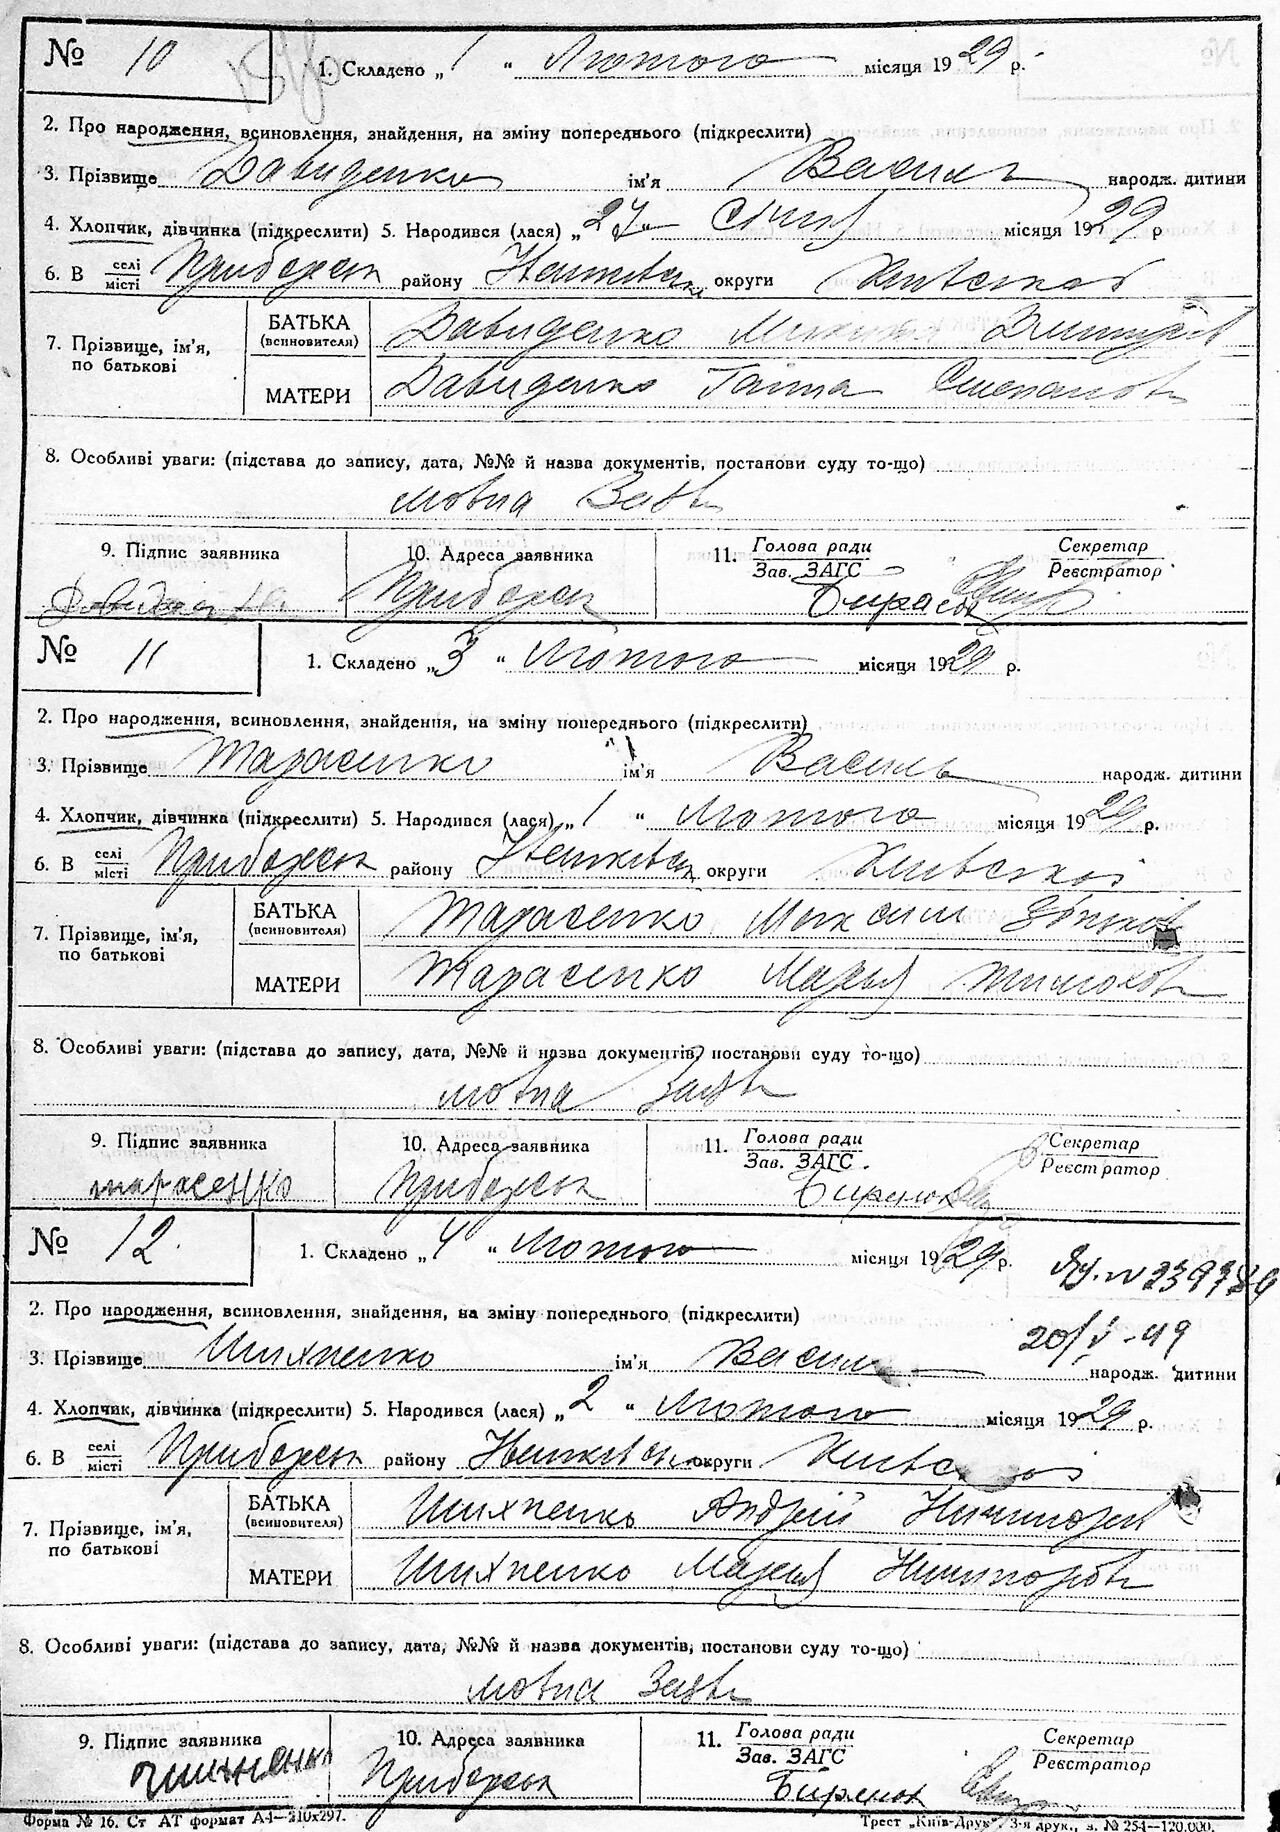 № 10 1. Складено „1“ Лютого місяця 1929 р.
2. Про народження, всиновлення, знайдення, на зміну попереднього (підкреслити)
3. Прізвище Давиденко ім'я Василь народж. дитини
4. Хлопчик, дівчинка (підкреслити) 5. Народився (лася) „27“ Січня місяця 1929 р
6. В селі/місті Приборськ району округи Київської
7. Прізвище, ім'я, по батькові
БАТЬКА (всиновителя) Давиденко Микита
МАТЕРИ Давиденко Ганна Степанов
8. Особливі уваги: (підстава до запису, дата, №№ й назва документів, постанови суду то-що)
мовна Заява
9. Підпис заявника 10. Адреса заявника 11. Голова ради/Зав. ЗАГС Секретар/Реєстратор
Приборськ
№ 11 1. Складено „3“ Лютого місяця 1929 р.
2. Про народження, всиновлення, знайдення, на зміну попереднього (підкреслити)
3. Прізвище Тарасенко ім'я Василь народж. дитини
4. Хлопчик, дівчинка (підкреслити) 5. Народився (лася) „1“ Лютого місяця 1929 р.
6. В селі/місті Приборськ району округи Київської
7. Прізвище, ім'я, по батькові
БАТЬКА (всиновителя) Тарасенко Максим
МАТЕРИ Тарасенко Марья
8. Особливі уваги: (підстава до запису, дата, №№ й назва документів, постанови суду то-що)
мовна Заява
9. Підпис заявника 10. Адреса заявника 11. Голова ради/Зав. ЗАГС Секретар/Реєстратор
тарасенко Приборськ
№ 12. 1. Складено „4“ Лютого місяця 1929 р.
2. Про народження, всиновлення, знайдення, на зміну попереднього (підкреслити)
20/V-49
3. Прізвище ім'я Василь народж. дитини
4. Хлопчик, дівчинка (підкреслити) 5. Народився (лася) „2“ Лютого місяця 1929 р.
6. В селі/місті Приборськ району округи Київської
7. Прізвище, ім'я, по батькові
БАТЬКА (всиновителя) Андрій
МАТЕРИ Марья
8. Особливі уваги: (підстава до запису, дата, №№ й назва документів, постанови суду то-що)
мовна Заява
9. Підпис заявника 10. Адреса заявника 11. Голова ради/Зав. ЗАГС Секретар/Реєстратор
Приборськ
Форма № 16. Ст АТ формат А4—210х297. Трест „Київ-Друк“, 3-я друк., з. № 254—120.000.